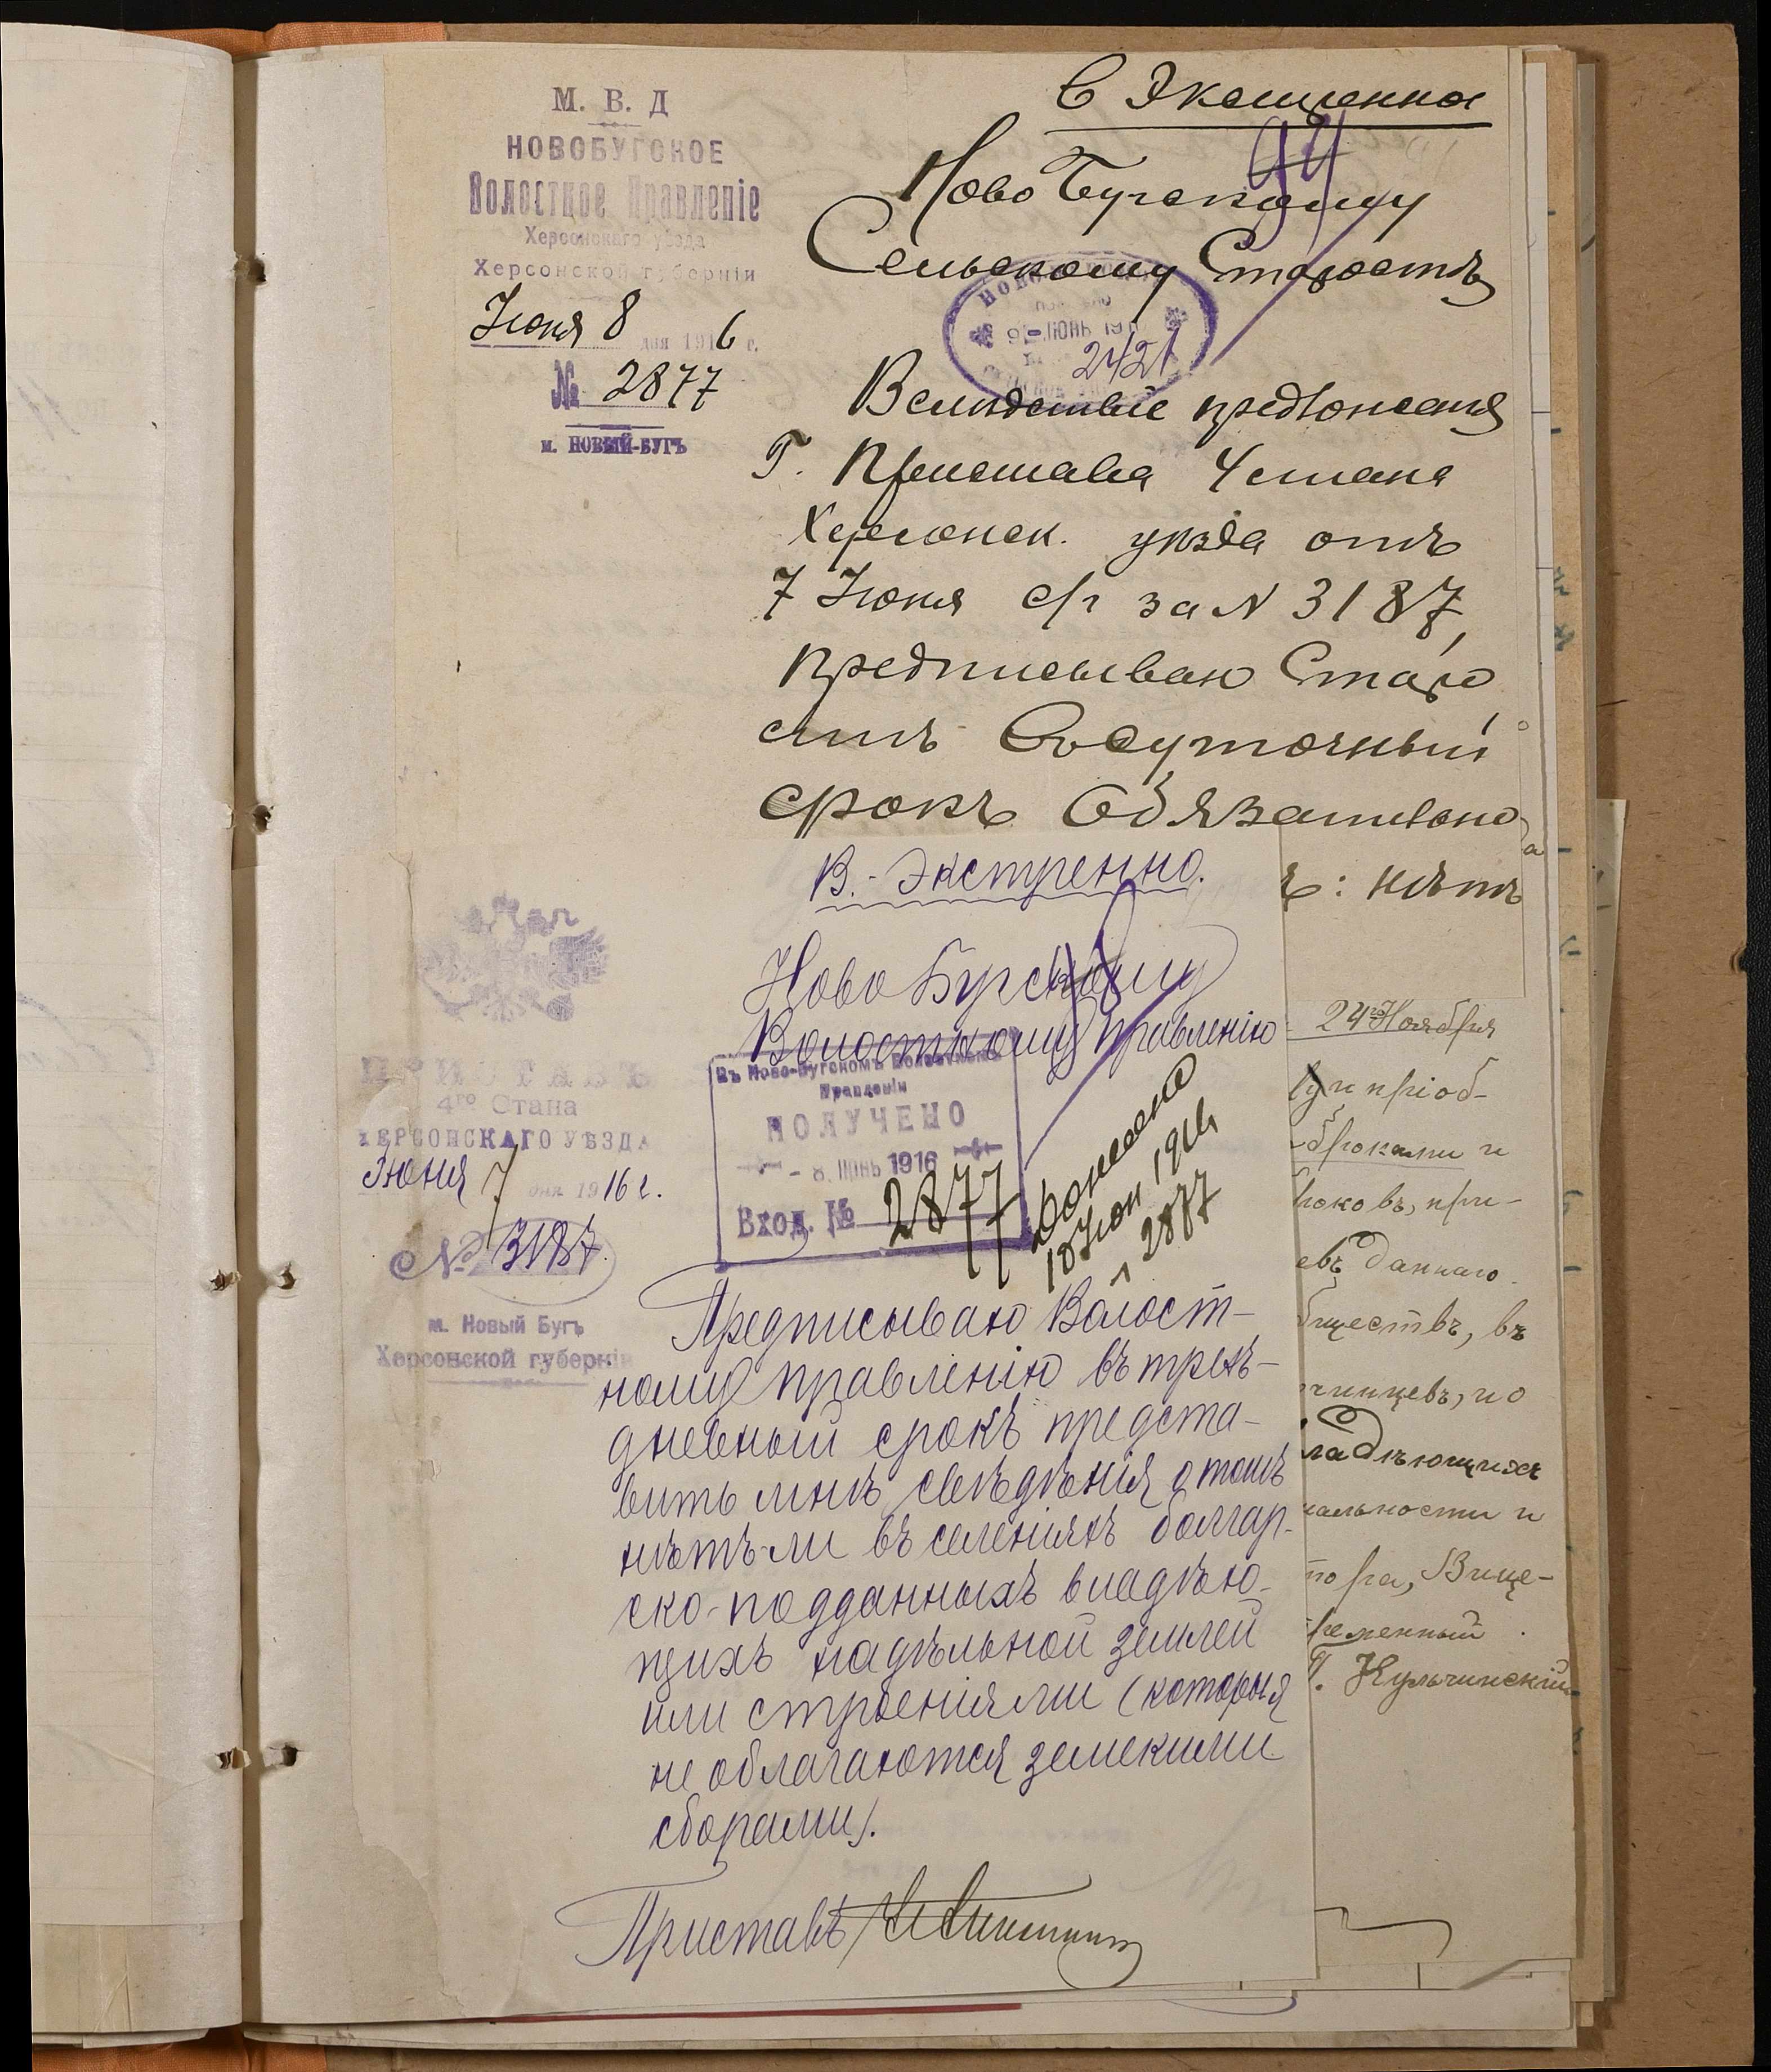 М. В. Д
НОВОБУГСКОЕ
Волостное Правленіе
Херсонскаго уѣзда
Херсонской губерніи
Іюня 8 дня 1916 г.
№ 2877
м. НОВЫЙ-БУГЪ
94
Ново Бугскому
Сельскому Старостѣ
9 ІЮНЬ 191
2421
Вслѣдствіе предложенія
Г. Пристава 4 стана
Херсонск. уѣзда отъ
7 Іюня с/г за N 3187,
предписываю Старо
стѣ Въ суточный
срокъ Обязательно
ъ: нѣтъ
В.- Экстренно.
Ново Бугскому
Волостному Правленію
ПРИСТАВЪ
4го Стана
ХЕРСОНСКАГО УѢЗДА
Іюня 7 дня 1916 г.
№ 3187.
м. Новый Бугъ
Херсонской губерніи
Въ Ново-Бугскомъ Волостномъ
Правленіи
ПОЛУЧЕНО
- 8. ІЮНЬ 1916
Вход. № 2877
Донесено
10 Іюн 1916
2877
Предписываю Волост-
ному Правленію въ трех-
дневный срокъ предста-
вить мнѣ свѣдѣнія о томъ
нѣтъ-ли въ селеніяхъ болгар-
ско-подданныхъ владѣю-
щихъ надѣльной землей
или строеніями (которыя
не облагаются земскими
сборами).
Приставъ
24го Ноября
пріоб-
оброками и
роковъ, при-
евъ даннаго
бществъ, въ
чинцевъ, и о
ладѣющихъ
альности и
тора, Вице-
ременный
Г. Кульчинскій